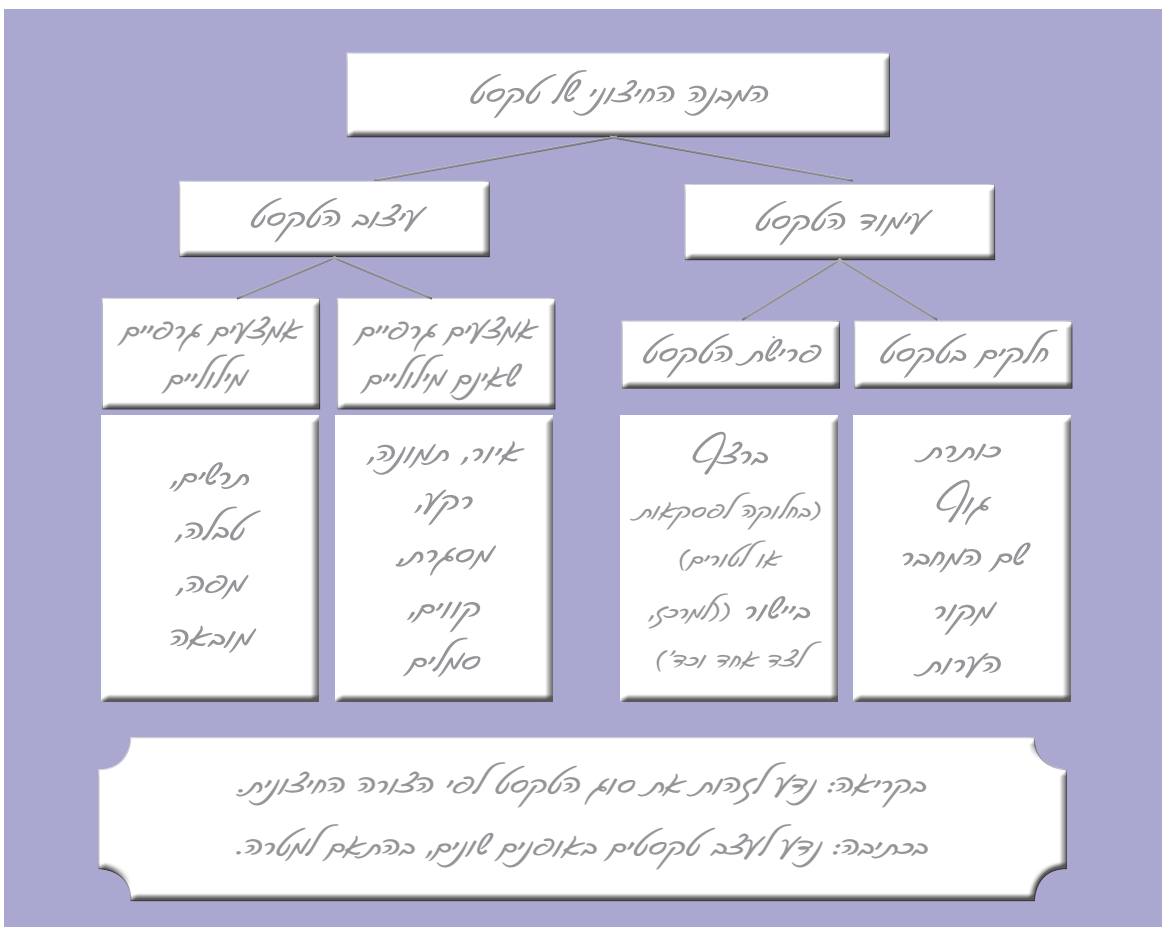 המבנה החיצוני של טקסט
עימוד הטקסט
עיצוב הטקסט
חלקים בטקסט
פרישֹת הטקסט
אמצעים גרפיים
שאינם מילוליים
אמצעים גרפיים
מילוליים
כותרת
גוף
שם המחבר
מקור
הערות
ברצף
(בחלוקה לפסקאות
או לטורים)
ביישור (למרכז,
לצד אחד וכד')
איור, תמונה,
רקע,
מסגרת,
קווים,
סמלים
תרשים,
טבלה,
מפה,
מובאה
בקריאה: נדע לזהות את סוג הטקסט לפי הצורה החיצונית.
בכתיבה: נדע לעצב טקסטים באופנים שונים, בהתאם למטרה.